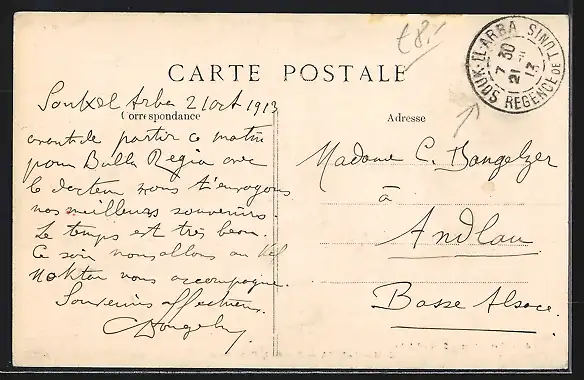 €8.-
SOUK-EL-ARBA
7 30
21 - 11
13
REGENCE DE TUNIS
CARTE POSTALE
Souk el Arba 21 Oct 1913
Correspondance
Adresse
avant de partir ce matin
pour Bulla Regia avec
le docteur nous t'envoyons
nos meilleurs souvenirs.
Le temps est très beau.
Ce soir nous allons au Kef
nous accompagne.
Souvenirs affectueux.
Madame C. Bangelzer
à
Andlau
Basse Alsace.